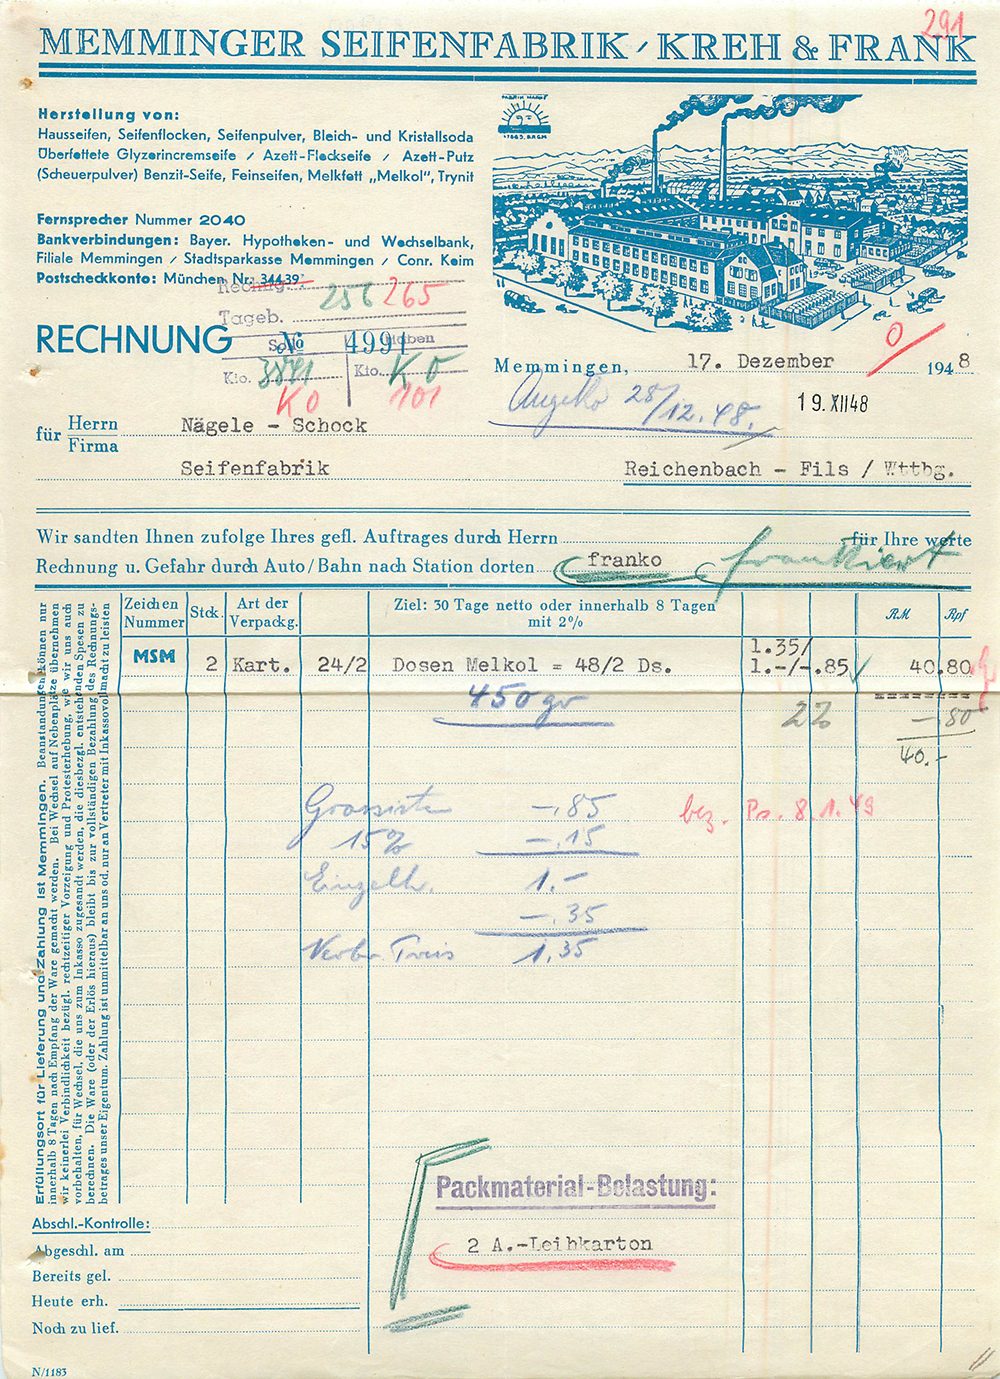 291
MEMMINGER SEIFENFABRIK / KREH & FRANK
Herstellung von:
Hausseifen, Seifenflocken, Seifenpulver, Bleich- und Kristallsoda
Überfettete Glyzerincremseife / Azett-Fleckseife / Azett-Putz
(Scheuerpulver) Benzit-Seife, Feinseifen, Melkfett „Melkol", Trynit
Fernsprecher Nummer 2040
Bankverbindungen: Bayer. Hypotheken- und Wechselbank,
Filiale Memmingen / Stadtsparkasse Memmingen / Conr. Keim
Postscheckkonto: München Nr. 34439
Rechng. 256 265
Tageb.
RECHNUNG
No 4991
Soll Haben
Kto. 3871 Kto. K0
K0 101
Memmingen, 17. Dezember 1948
0
28/12.48.
19. XII 48
für Herrn Firma
Nägele - Schock
Seifenfabrik Reichenbach - Fils / Wttbg.
Wir sandten Ihnen zufolge Ihres gefl. Auftrages durch Herrn für Ihre werte
Rechnung u. Gefahr durch Auto/Bahn nach Station dorten franko frankiert
Zeichen Nummer
Stck.
Art der Verpackg.
Ziel: 30 Tage netto oder innerhalb 8 Tagen
mit 2%
RM
Rpf
1.35/
MSM 2 Kart. 24/2 Dosen Melkol = 48/2 Ds. 1.-/-.85 40.80
450 gr
2% -.80
40.-
Grossisten -.85
bez. Ps. 8.1.49
15% -.15
Einzelh. 1.-
-.35
Verbr. Preis 1.35
Erfüllungsort für Lieferung und Zahlung ist Memmingen. Beanstandungen können nur
innerhalb 8 Tagen nach Empfang der Ware gemacht werden. Bei Wechsel auf Nebenplätze übernehmen
wir keinerlei Verbindlichkeit bezügl. rechtzeitiger Vorzeigung und Protesterhebung, wie wir uns auch
vorbehalten, für Wechsel, die uns zum Inkasso zugesandt werden, die diesbezgl. entstehenden Spesen zu
berechnen. Die Ware (oder der Erlös hieraus) bleibt bis zur vollständigen Bezahlung des Rechnungs-
betrages unser Eigentum. Zahlung ist unmittelbar an uns od. nur an Vertreter mit Inkassovollmacht zu leisten
Packmaterial-Belastung:
2 A.-Leihkarton
Abschl.-Kontrolle:
Abgeschl. am
Bereits gel.
Heute erh.
Noch zu lief.
N/1183